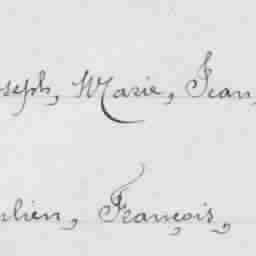 oseph, Marie, Jean,
ulien, François,